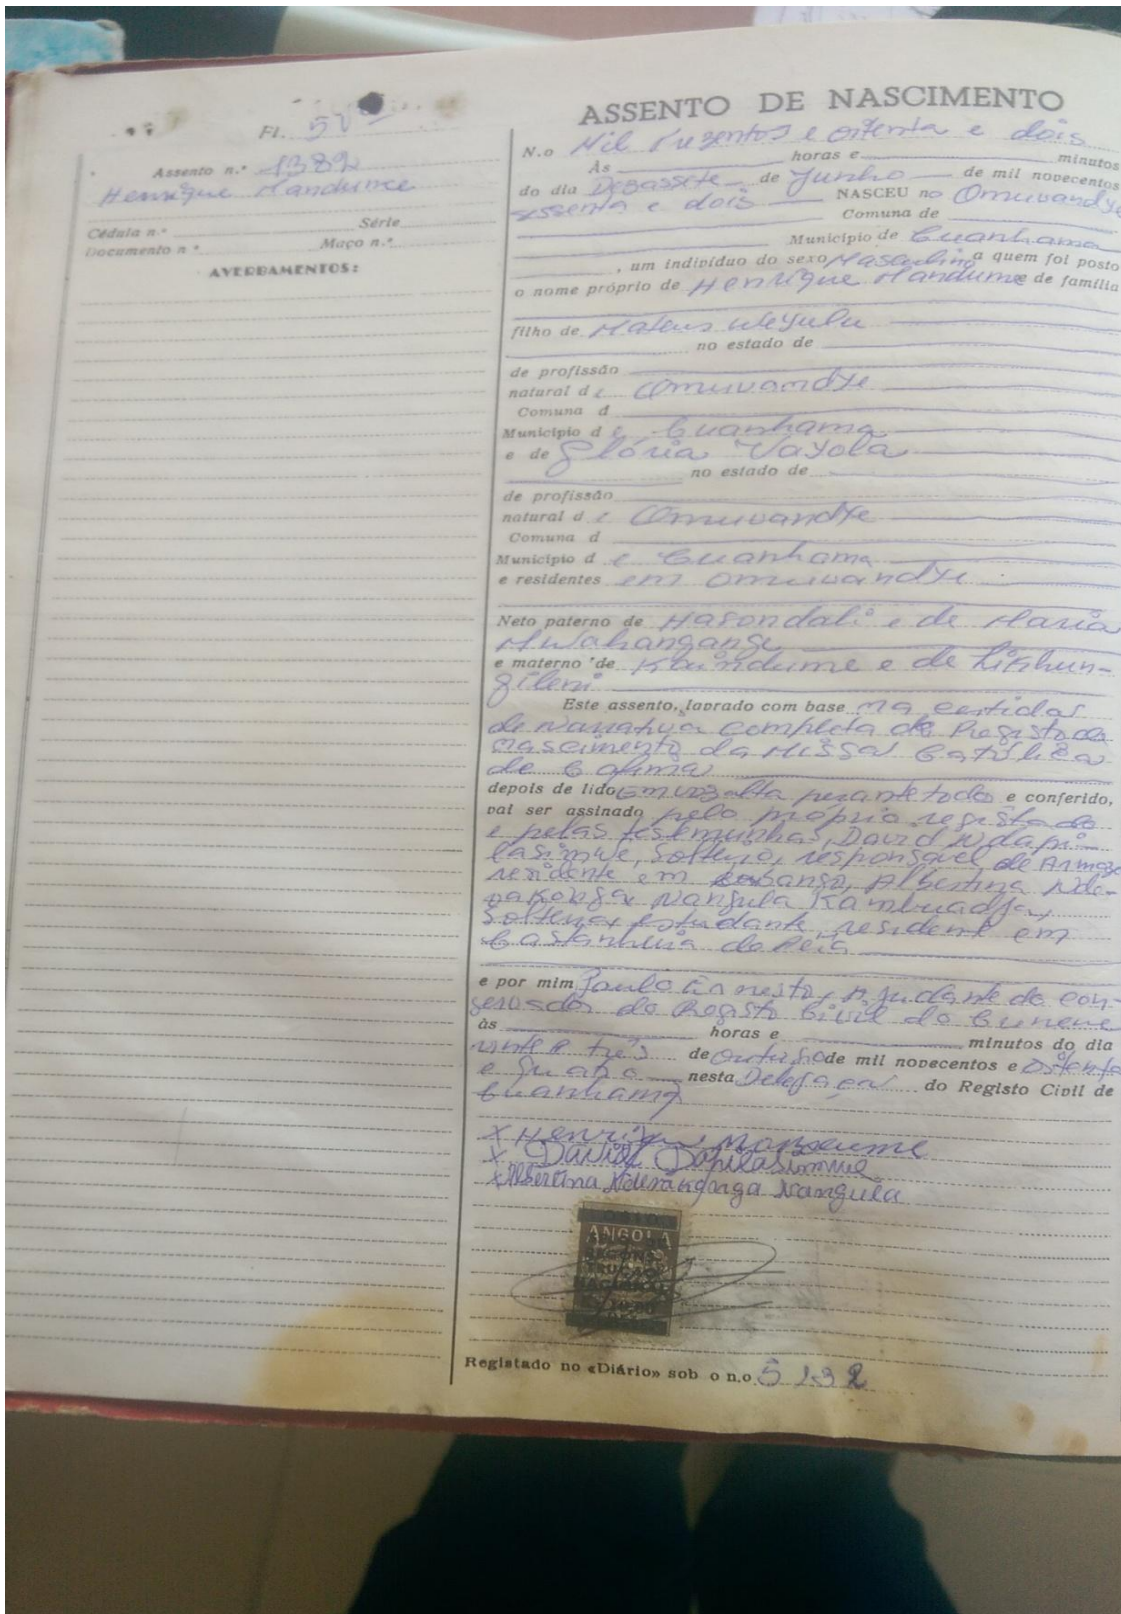 Fl. 5Vº
Assento n.º 1382
Henrique Mandume
Cédula n.º Série
Documento n.º Maço n.º
AVERBAMENTOS:
ASSENTO DE NASCIMENTO
N.o Mil Trezentos e oitenta e dois
Às horas e minutos
do dia Dezassete de Junho de mil novecentos
sessenta e dois NASCEU no Omuvandye
Comuna de
Município de Cuanhama
, um indivíduo do sexo Masculino a quem foi posto
o nome próprio de Henrique Mandume e de família
filho de Mateus Weyulu
no estado de
de profissão
natural de Omuvandye
Comuna d
Município de Cuanhama
e de Glória Vayola
no estado de
de profissão
natural de Omuvandye
Comuna d
Município de Cuanhama
e residentes em Omuvandye
Neto paterno de Hasondali e de Maria
Mwahangange
e materno de Kaindume e de
Este assento, lavrado com base na certidão
de narrativa completa de Registo de
nascimento da Missão Católica
de Cafima
depois de lido em voz alta perante todos e conferido,
vai ser assinado pelo próprio registado
e pelas testemunhas, David Ndapi-
lasimwe, Solteiro, responsável de
residente em Albertina Nde-
vakonga Nangula Kambuadja,
Solteira, estudante, residente em
Castanheira de Pêra
e por mim Paulo Ernesto, Ajudante do con-
servador do Registo Civil do Cunene
às horas e minutos do dia
vinte e três de Outubro de mil novecentos e oitenta
e quatro nesta Delegação do Registo Civil de
Cuanhama
x Henrique Mandume
x David Dapilasimwe
x Albertina Ndevakonga Nangula
ANGOLA
RECONS
TRUÇÃO
NACIONAL
Registado no «Diário» sob o n.o 5132